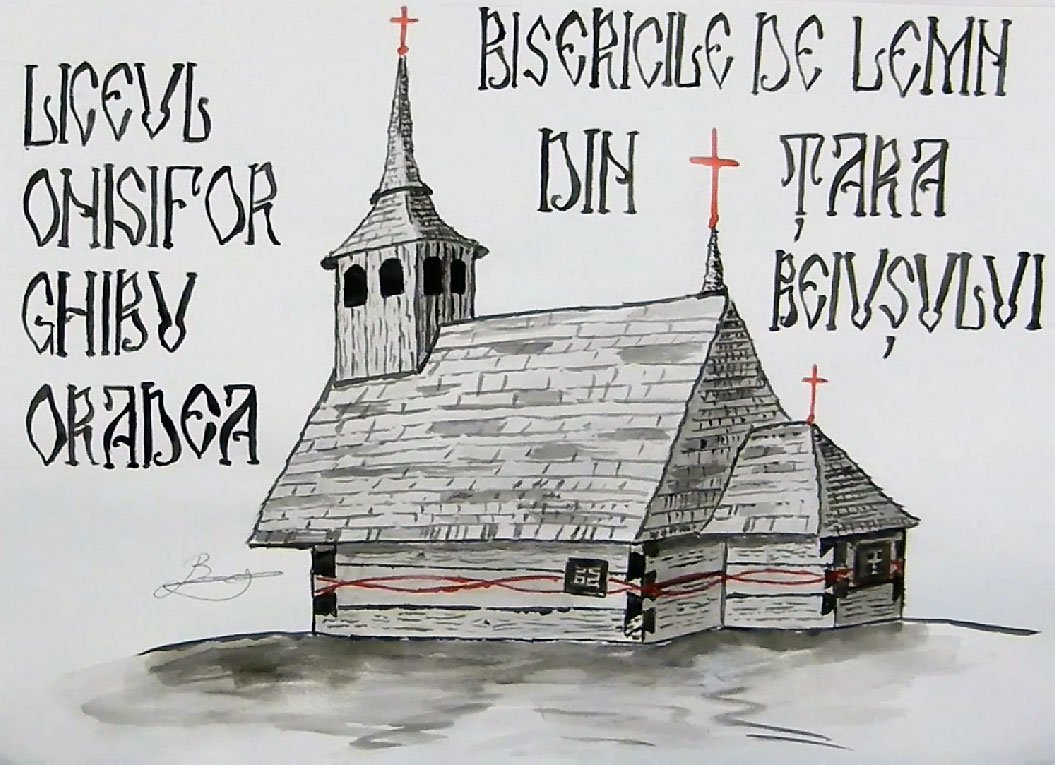 LICEUL
ONISIFOR
GHIBU
ORADEA
BISERICILE DE LEMN
DIN ȚARA
BEIUȘULUI